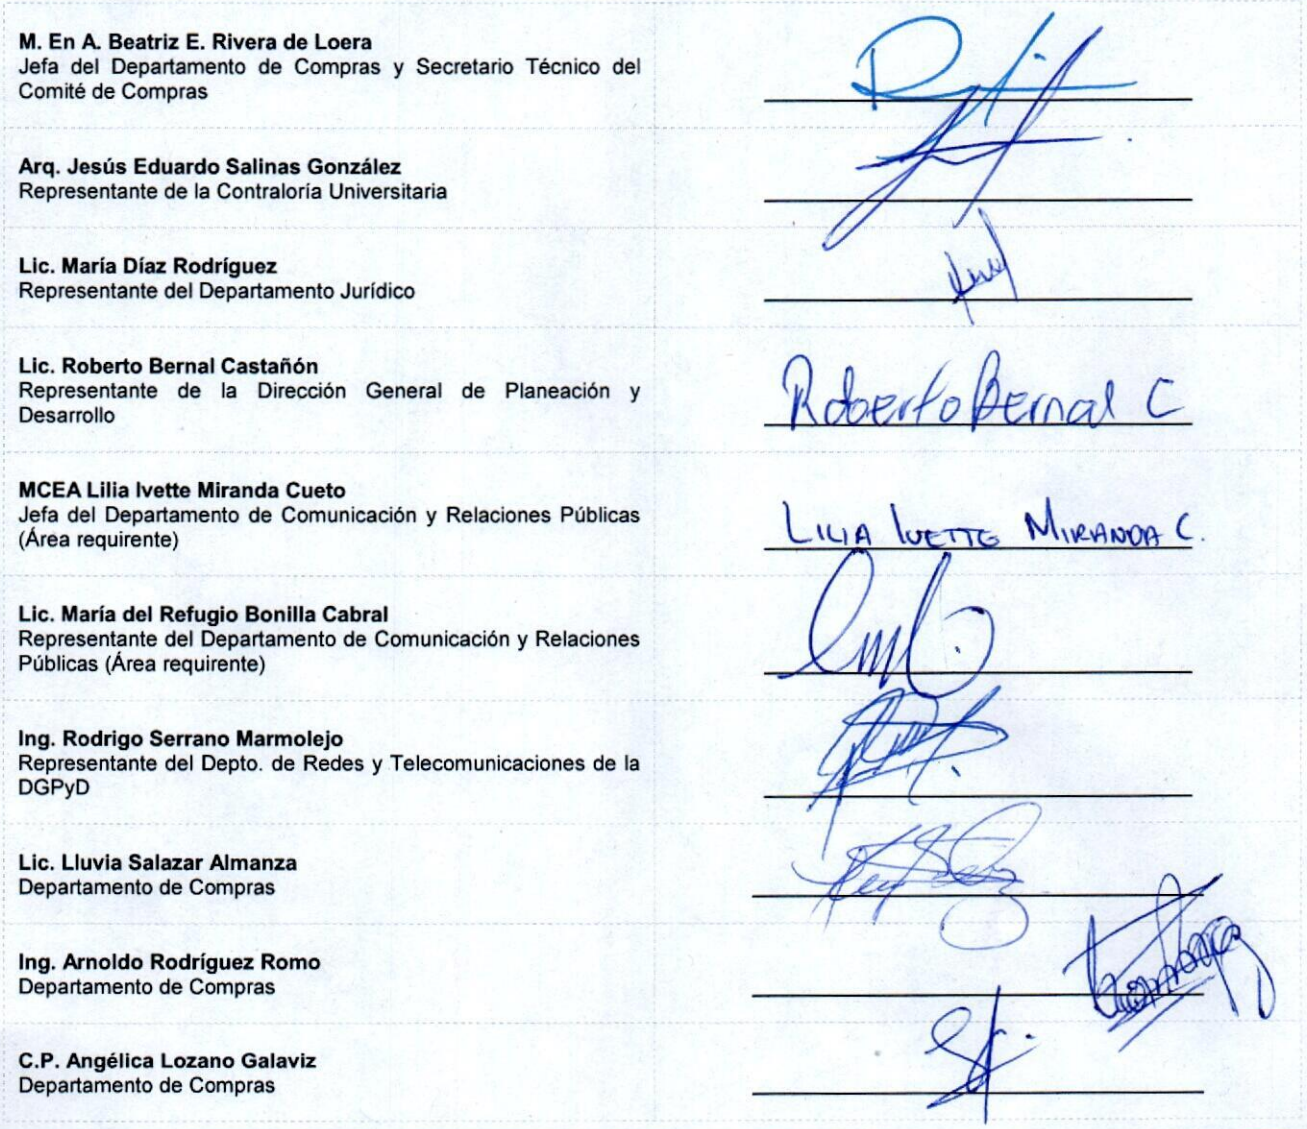 M. En A. Beatriz E. Rivera de Loera
Jefa del Departamento de Compras y Secretario Técnico del
Comité de Compras
Arq. Jesús Eduardo Salinas González
Representante de la Contraloría Universitaria
Lic. María Díaz Rodríguez
Representante del Departamento Jurídico
Lic. Roberto Bernal Castañón
Representante de la Dirección General de Planeación y
Desarrollo
Roberto Bernal C
MCEA Lilia Ivette Miranda Cueto
Jefa del Departamento de Comunicación y Relaciones Públicas
(Área requirente)
LILIA IVETTE MIRANDA C.
Lic. María del Refugio Bonilla Cabral
Representante del Departamento de Comunicación y Relaciones
Públicas (Área requirente)
Ing. Rodrigo Serrano Marmolejo
Representante del Depto. de Redes y Telecomunicaciones de la
DGPyD
Lic. Lluvia Salazar Almanza
Departamento de Compras
Ing. Arnoldo Rodríguez Romo
Departamento de Compras
C.P. Angélica Lozano Galaviz
Departamento de Compras